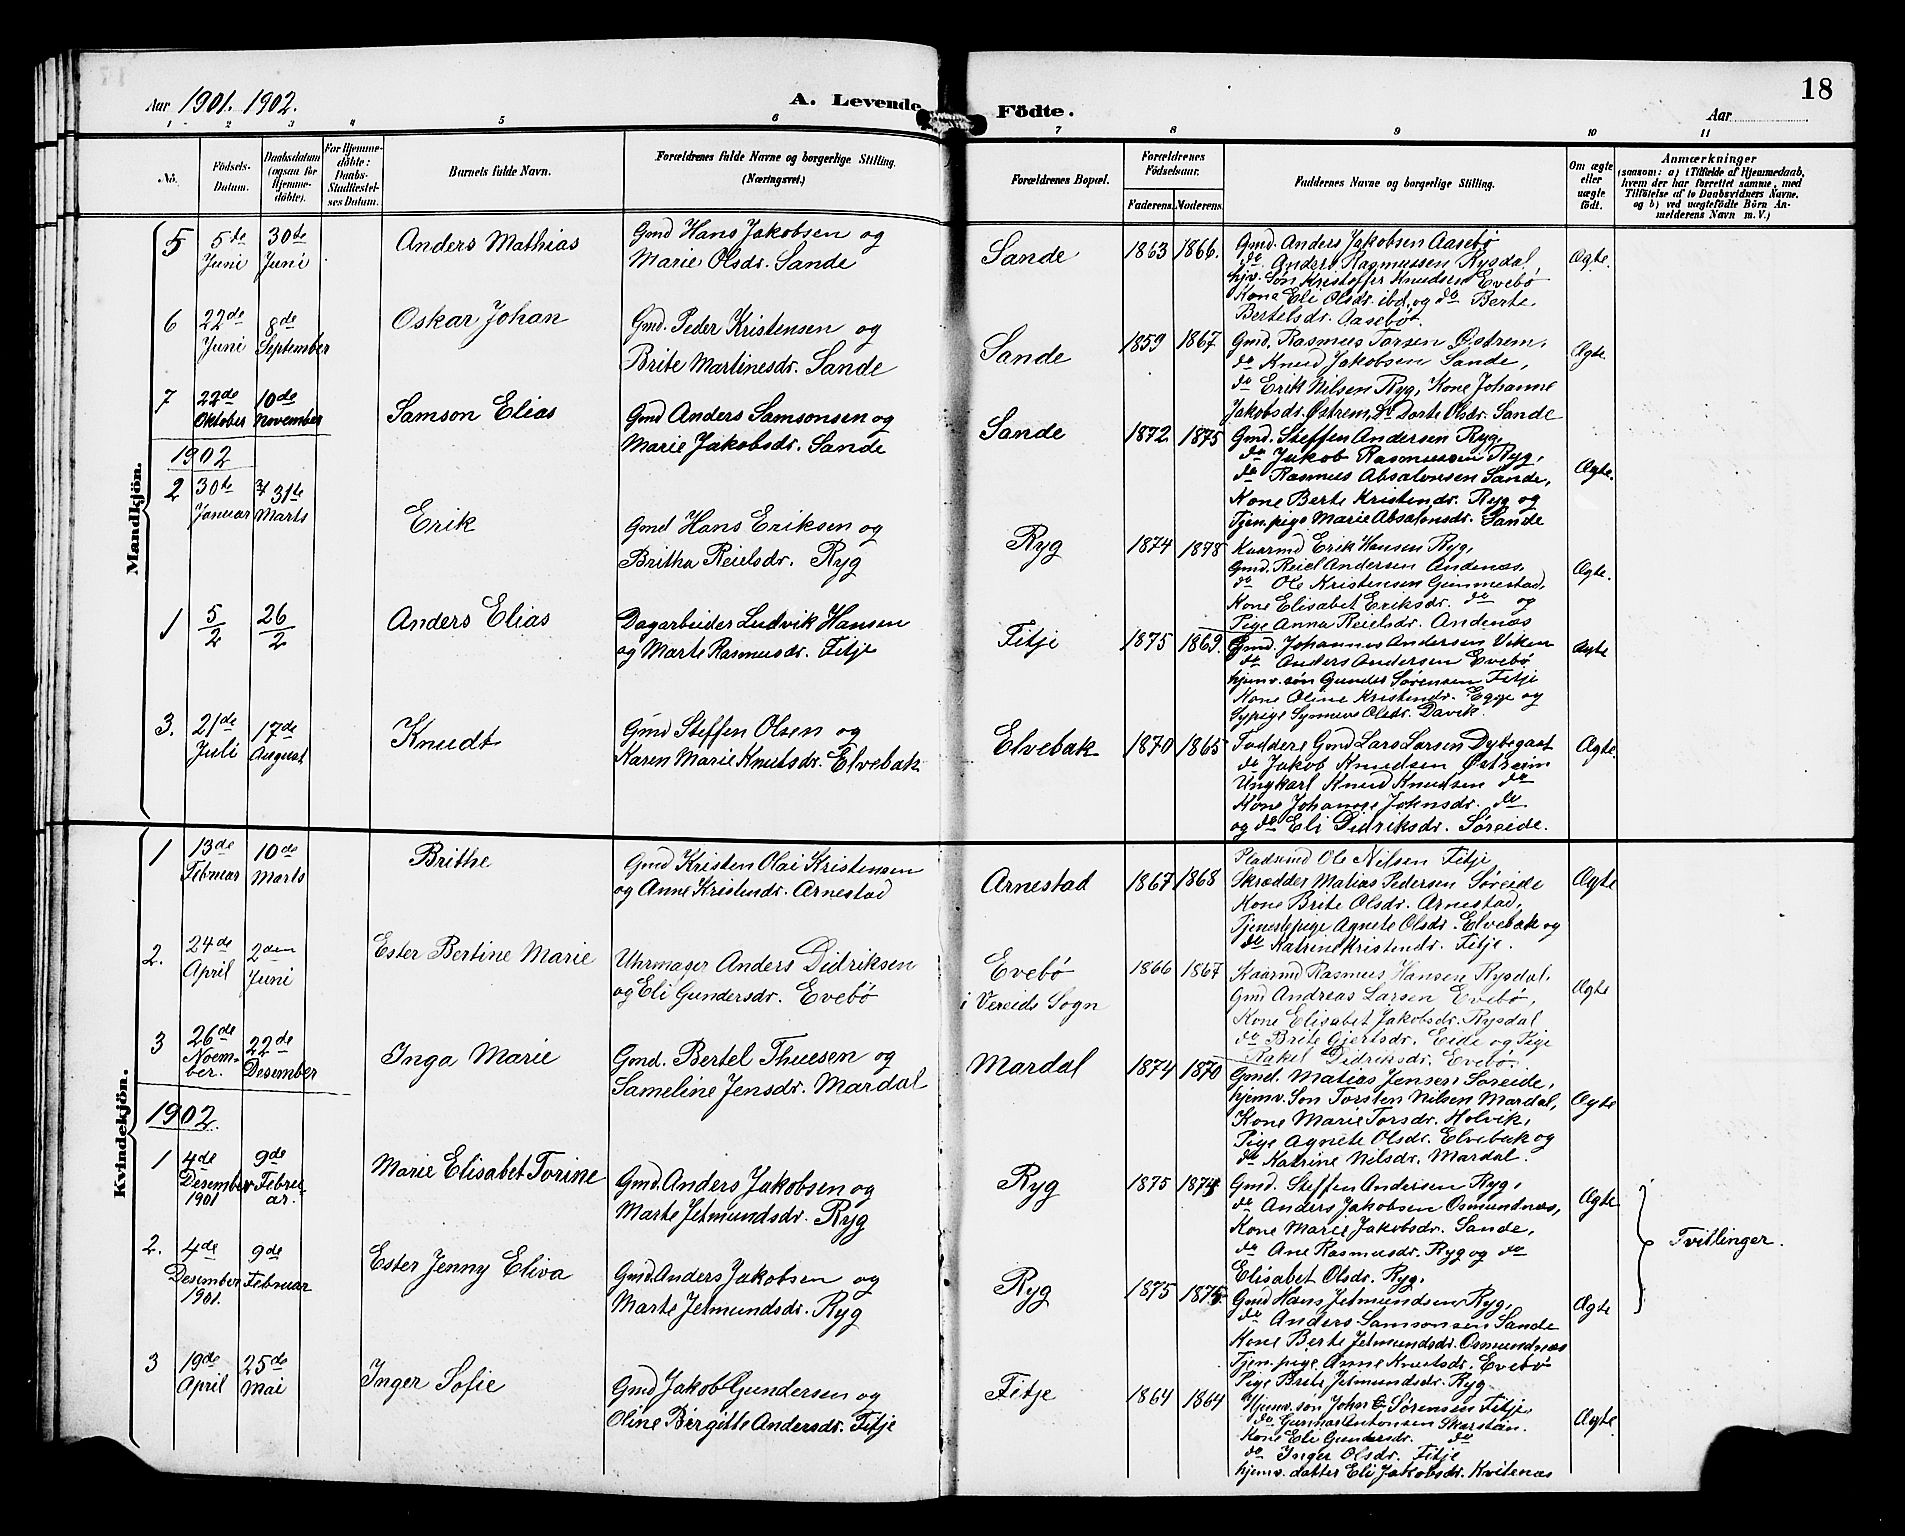 18
Aar 1901. 1902.
A. Levende
Födte.
Aar
1 2 3 4 5 6 7 8 9 10 11
No.
Födsels-
Datum.
Daabsdatum
(ogsaa for
Hjemme-
döbte).
For Hjemme-
döbte:
Daabs-
Stadfæstel-
ses Datum.
Barnets fulde Navn.
Forældrenes fulde Navne og borgerlige Stilling.
(Næringsvei.)
Forældrenes Bopæl.
Forældrenes
Födselsaar.
Faderens. Moderens.
Faddernes Navne og borgerlige Stilling.
Om ægte
eller
uægte
födt.
Anmærkninger
(saasom: a) i Tilfælde af Hjemmedaab,
hvem der har forrettet samme, med
Tilföielse af to Daabsvidners Navne,
og b) ved uægtefödte Börn An-
melderens Navn m.V.)
Mandkjön.
5
5de
Juni
30te
Juni
Anders Mathias
Gmd Hans Jakobsen og
Marie Olsdr. Sande
Sande
1863
1866.
Gmd. Anders Jakobsen Aasebø
do Anders Rasmussen Rysdal,
hjv. Søn Kristoffer Knudsen Evebø
Kone Eli Olsdr. ibd. og do Berte
Bertelsdr. Aasebø.
Ægte.
6
22de
Juni
8de
September
Oskar Johan
Gmd. Peder Kristensen og
Brite Martinesdr. Sande
Sande
1859
1867
Gmd. Rasmus Torsen Østrem,
do Knud Jakobsen Sande,
do Erik Nilsen Ryg, Kone Johanne
Jakobsdr. Østrem, do Dorte Olsdr. Sande
Ægte.
7
22de
Oktober
10de
November
Samson Elias
Gmd Anders Samsonsen og
Marie Jakobsdr. Sande
Sande
1872
1875
Gmd. Steffen Andersen Ryg,
do Jakob Rasmussen Ryg,
do Rasmus Absalonsen Sande,
Kone Berte Kristendr. Ryg og
Tjen. pige Marie Absalonsdr. Sande
Ægte.
1902
2
30te
Januar
31te
Marts
Erik
Gmd Hans Eriksen og
Britha Reielsdr. Ryg
Ryg
1874
1878
Kaarmd Erik Hansen Ryg,
Gmd. Reiel Andersen Andenæs,
do Ole Kristensen Gimmestad,
Kone Elisabet Eriksdr. do og
Pige Anna Reielsdr. Andenæs
Ægte.
1
5/2
26/2
Anders Elias
Dagarbeider Ludvik Hansen
og Marte Rasmusdr. Fitje
Fitje
1875
1869.
Gmd. Johannes Andersen Viken
do Anders Andersen Evebø
hjemv. søn Gunder Sørensen Fitje
Kone Oline Kristendr. Egge og
Sypige Synneve Olsdr. Davik.
Ægte
3.
21de
Juli
17de
August
Knudt
Gmd Steffen Olsen og
Karen Marie Knutsdr. Elvebak
Elvebak
1870
1865
Faddere Gmd Lars Larsen Dybegaat
do Jakob Knudsen Østreim
Ungkarl Knud Knudsen do
Kone Johanne Johnsdr. do
og do Eli Didriksdr. Søreide.
Ægte.
Kvindekjön.
1
13de
Februar
10de
Marts
Brithe
Gmd Kristen Olai Kristensen
og Anne Kristendr. Arnestad
Arnestad
1867
1868
Pladsmd Ole Nilsen Fitje,
Skrædder Matias Pedersen Søreide
Kone Brite Olsdr. Arnestad,
Tjenestepige Agnete Olsdr. Elvebak og
do Katrine Kristendr. Fitje.
Ægte
2.
24de
April
2den
Juni
Ester Bertine Marie
Uhrmager Anders Didriksen
og Eli Gundersdr. Evebø
Evebø
i Vereids Sogn
1866
1867
Kaarmd Rasmus Hansen Rysdal,
Gmd Andreas Larsen Evebø,
Kone Elisabet Jakobsdr. Rysdal
do Brite Gjertsdr. Eide og Pige
Rakel Didriksdr. Evebø.
Ægte
3
26de
Noem-
ber.
22de
Desember
Inga Marie
Gmd. Bertel Thuesen og
Sameline Jensdr. Mardal
Mardal
1874
1870
Gmd. Matias Jensen Søreide,
hjemv. Søn Torsten Nilsen Mardal,
Kone Marie Torsdr. Holvik,
Pige Agnete Olsdr. Elvebak og
do Katrine Nilsdr. Mardal.
Ægte
1902.
1
4de
Desember
1901
9de
Febru-
ar.
Marie Elisabet Torine
Gmd. Anders Jakobsen og
Marte Jetmundsdr. Ryg
Ryg
1875
Gmd. Steffen Andersen Ryg,
do Anders Jakobsen Osmundnæs,
Kone Marie Jakobsdr. Sande,
do Ane Rasmusdr. Ryg og do
Elisabet Olsdr. Ryg.
Ægte
Tvillinger.
2.
4de
Desember
1901.
9de
Februar
Ester Jenny Eliva
Gmd. Anders Jakobsen og
Marte Jetmundsdr. Ryg
Ryg
1875
Gmd Hans Jetmundsen Ryg,
do Anders Samsonsen Sande
Kone Berte Jetmundsdr. Osmundnæs
Tjen. pige Anne Knutsdr. Evebø
Pige Brite Jetmundsdr. Ryg
Ægte
3
19de
April
25de
Mai
Inger Sofie
Gmd Jakob Gundersen og
Oline Birgitte Andersdr. Fitje
Fitje
1864
1864
Hjemv. søn John G. Sørensen Fitje
do Gunnar Antonsen Skarstän.
Kone Eli Gundersdr. do
do Inger Olsdr. Fitje
hjemv. datter Eli Jakobsdr. Kvilenæs
Ægte.